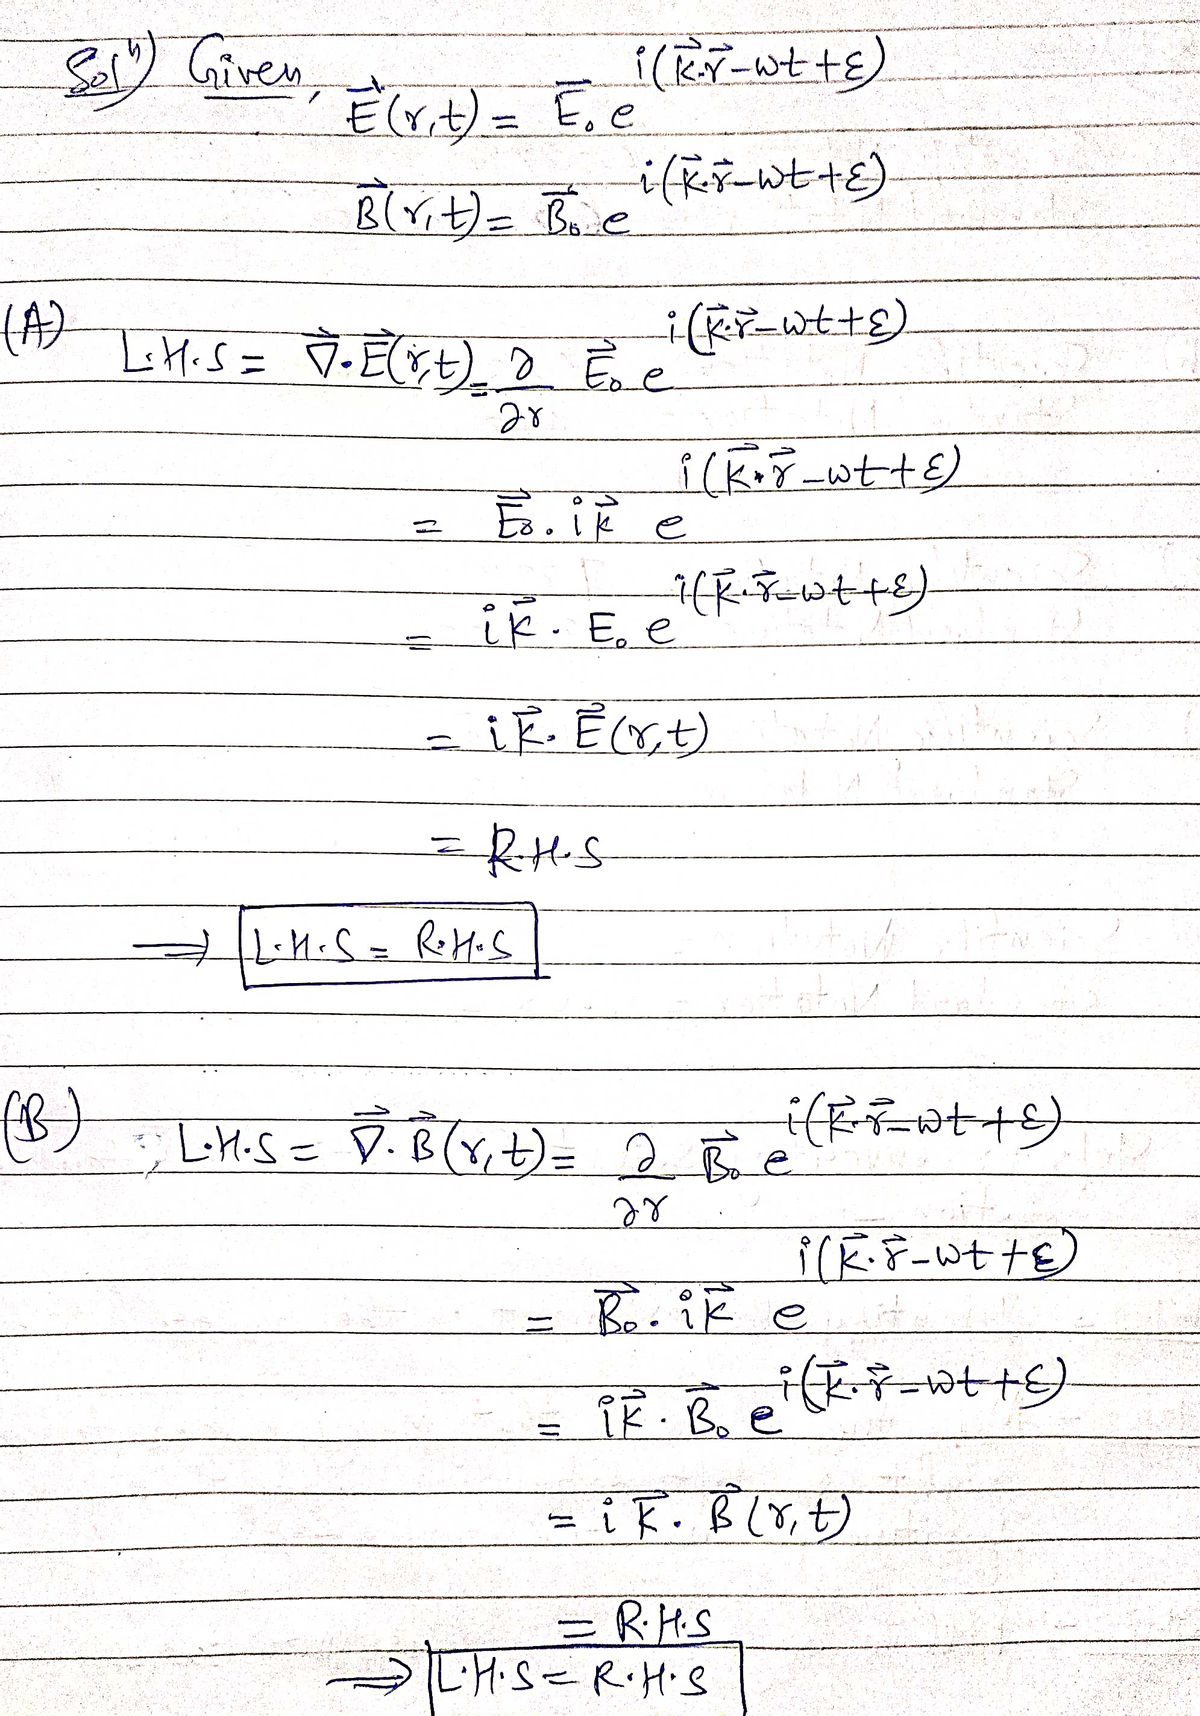 Solⁿ) Given,
E⃗(r,t) = E⃗₀ e^{i(k⃗·r⃗-ωt+ε)}
B⃗(r,t) = B⃗₀ e^{i(k⃗·r⃗-ωt+ε)}
(A)
L.H.S = ∇⃗·E⃗(r,t) = ∂/∂r E⃗₀ e^{i(k⃗·r⃗-ωt+ε)}
= E⃗₀·ik⃗ e^{i(k⃗·r⃗-ωt+ε)}
= ik⃗·E₀ e^{i(k⃗·r⃗-ωt+ε)}
= ik⃗·E⃗(r,t)
= R.H.S
⇒ L.H.S = R.H.S
(B) L.H.S = ∇⃗·B⃗(r,t) = ∂/∂r B⃗₀ e^{i(k⃗·r⃗-ωt+ε)}
= B⃗₀·ik⃗ e^{i(k⃗·r⃗-ωt+ε)}
= ik⃗·B⃗₀ e^{i(k⃗·r⃗-ωt+ε)}
= ik⃗·B⃗(r,t)
= R.H.S
⇒ L.H.S = R.H.S